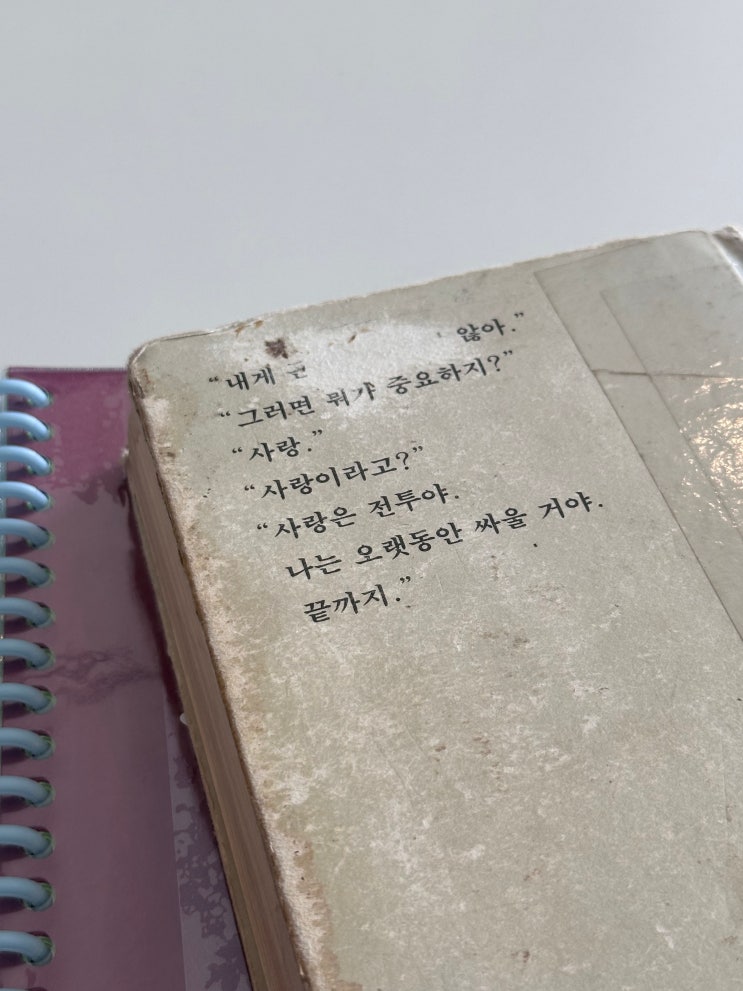 “내게 않아.”
“그러면 뭐가 중요하지?”
“사랑.”
“사랑이라고?”
“사랑은 전투야.
나는 오랫동안 싸울 거야.
끝까지.”